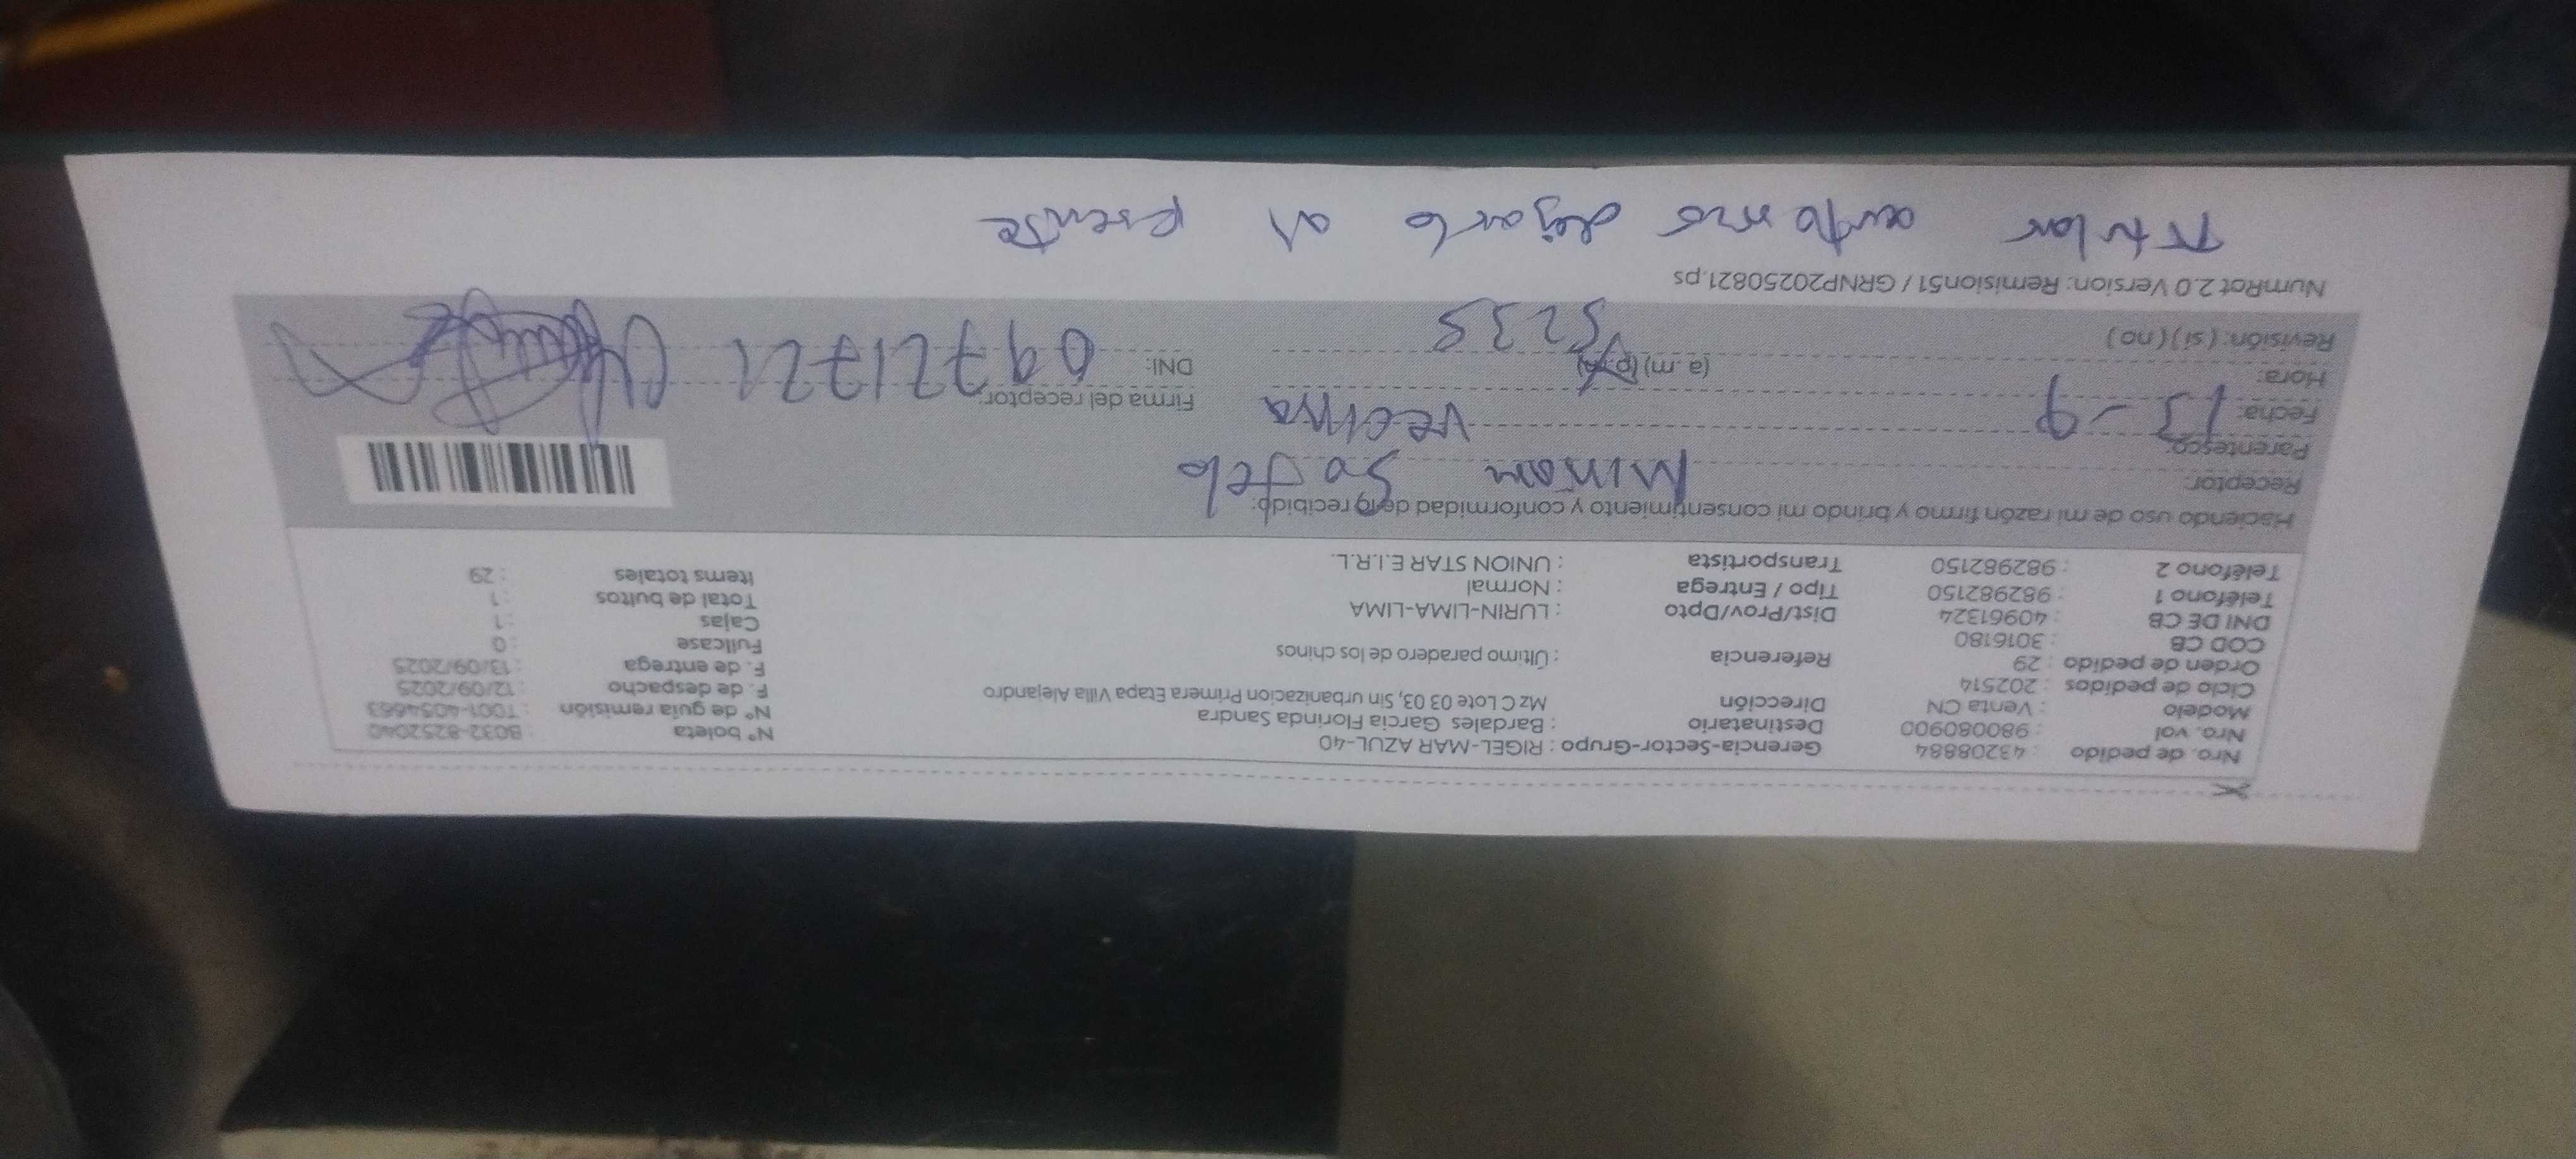 Nro. de pedido : 43208884 Gerencia-Sector-Grupo : RIGEL-MAR AZUL-40 N° boleta : B032-8252040
Nro. vol : 980080900 Destinatario : Bardales Garcia Florinda Sandra N° de guía remisión : T001-4054663
Modelo : Venta CN Dirección Mz C Lote 03 03, Sin urbanizacion Primera Etapa Villa Alejandro F. de despacho : 12/09/2025
Ciclo de pedidos : 202514 F. de entrega : 13/09/2025
Orden de pedido : 29 Referencia : Último paradero de los chinos Fullcase : 0
COD CB : 3016180 Cajas : 1
DNI DE CB : 40961324 Dist/Prov/Dpto : LURIN-LIMA-LIMA Total de bultos : 1
Teléfono 1 : 982982150 Tipo / Entrega : Normal Items totales : 29
Teléfono 2 : 982982150 Transportista : UNION STAR E.I.R.L.
Haciendo uso de mi razón firmo y brindo mi consentimiento y conformidad de lo recibido:
Receptor: Miriam Sotelo
Parentesco: vecina
Fecha: 13-9 Firma del receptor:
Hora: (a.m) (p.m) DNI: 09721721
Revisión: (sí) (no) 5238
NumRot 2.0 Version: Remision51 / GRNP20250821.ps
Titular autorizo dejarlo al presente